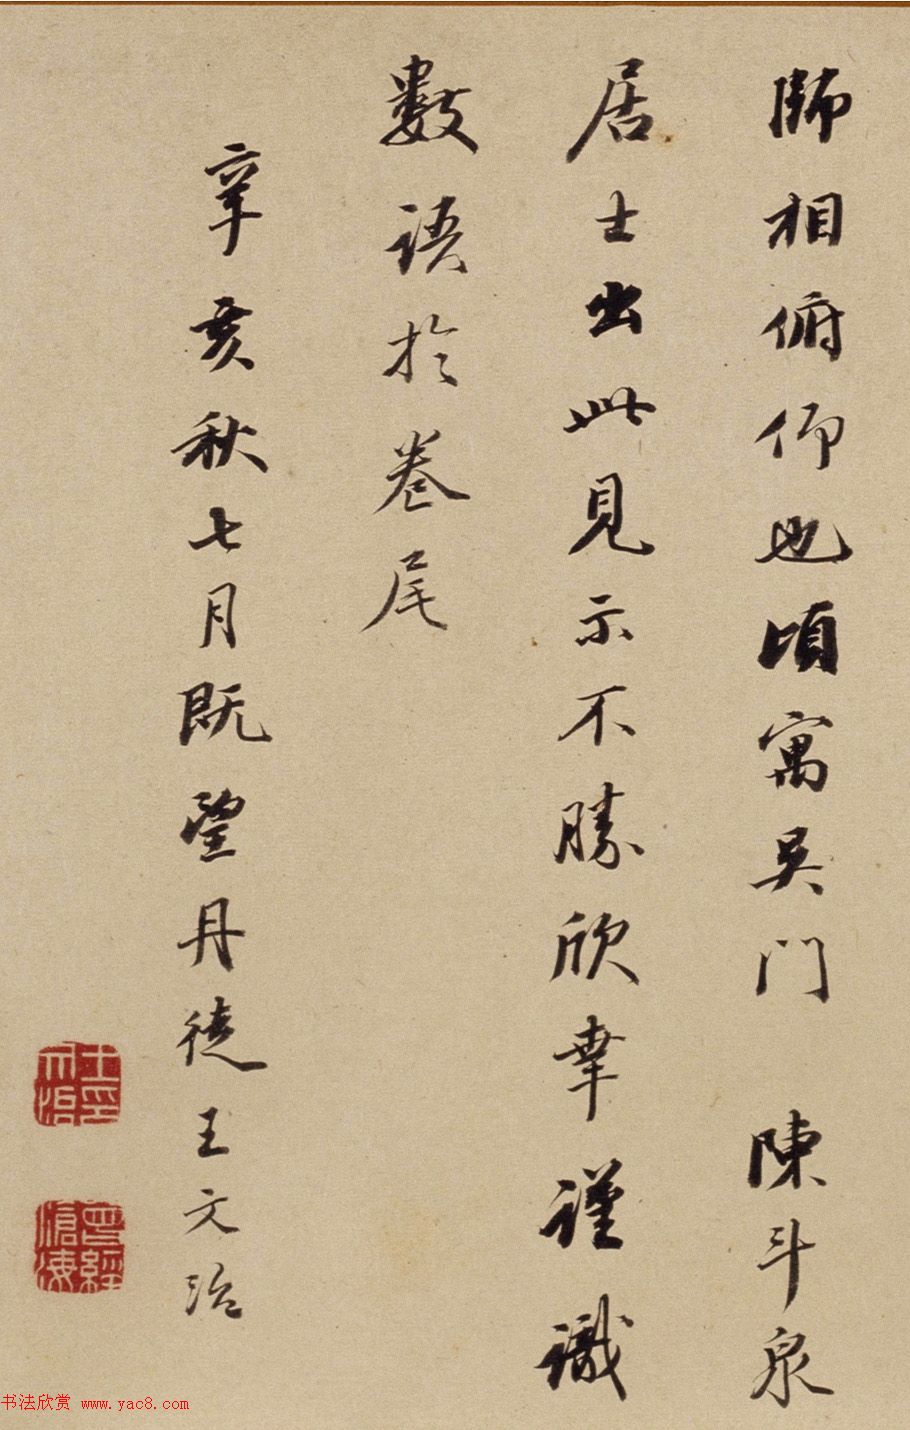 師相俯仰也頃寓吳門 陳斗泉
居士出此見示不勝欣幸謹識
數語於卷尾
辛亥秋七月既望丹徒王文治
王文治印
曾經滄海
书法欣赏 www.yac8.com